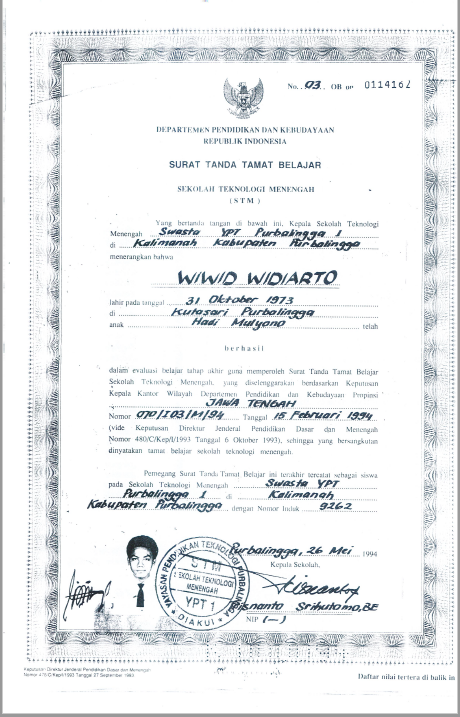 No. 03 OB oe 0114162
DEPARTEMEN PENDIDIKAN DAN KEBUDAYAAN
REPUBLIK INDONESIA
SURAT TANDA TAMAT BELAJAR
SEKOLAH TEKNOLOGI MENENGAH
( S T M )
Yang bertanda tangan di bawah ini, Kepala Sekolah Teknologi
Menengah Swasta YPT Purbalingga 1
di Kalimanah Kabupaten Purbalingga
menerangkan bahwa
WIWID WIDIARTO
lahir pada tanggal 31 Oktober 1973
di Kutasari Purbalingga
anak Hadi Mulyono telah
berhasil
dalam evaluasi belajar tahap akhir guna memperoleh Surat Tanda Tamat Belajar
Sekolah Teknologi Menengah, yang diselenggarakan berdasarkan Keputusan
Kepala Kantor Wilayah Departemen Pendidikan dan Kebudayaan Propinsi
JAWA TENGAH
Nomor 070/I03/M/94 Tanggal 15 Februari 1994
(vide Keputusan Direktur Jenderal Pendidikan Dasar dan Menengah
Nomor 480/C/Kep/I/1993 Tanggal 6 Oktober 1993), sehingga yang bersangkutan
dinyatakan tamat belajar sekolah teknologi menengah.
Pemegang Surat Tanda Tamat Belajar ini terakhir tercatat sebagai siswa
pada Sekolah Teknologi Menengah Swasta YPT
Purbalingga 1 di Kalimanah
Kabupaten Purbalingga dengan Nomor Induk 9262
Purbalingga, 26 Mei 1994
Kepala Sekolah,
YAYASAN PENDIDIKAN TEKNOLOGI PURBALINGGA
S T M
SEKOLAH TEKNOLOGI
MENENGAH
YPT 1
DIAKUI
Srihutomo, BE
NIP (—)
Keputusan Direktur Jenderal Pendidikan Dasar dan Menengah
Tanggal 27 September 1993
Daftar nilai tertera di balik in